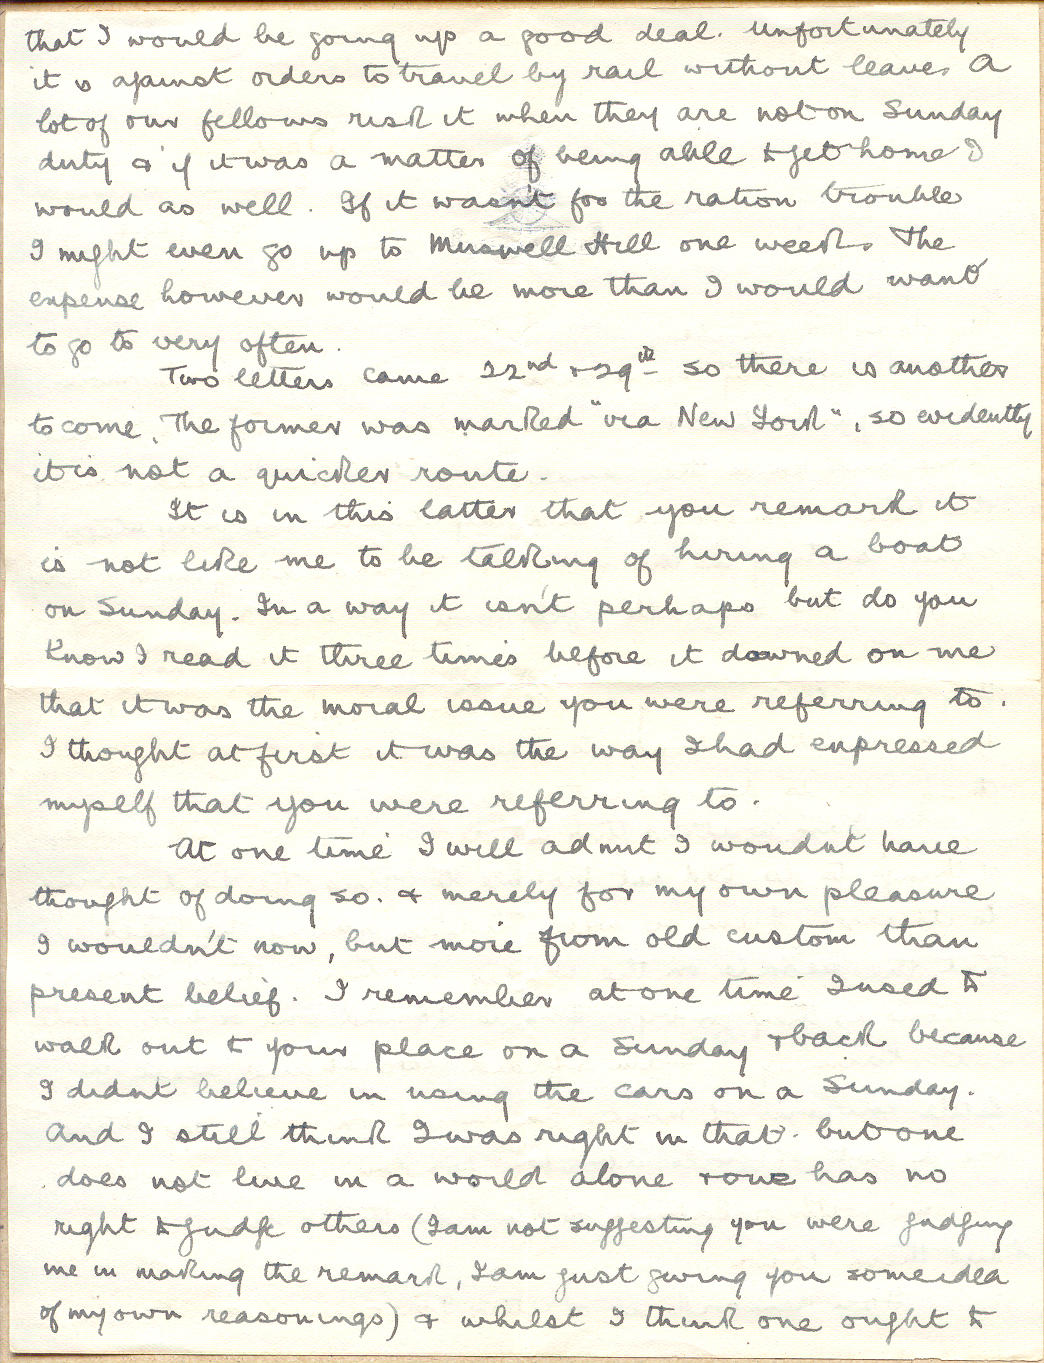 that I would be going up a good deal. Unfortunately
it is against orders to travel by rail without leave. A
lot of our fellows risk it when they are not on Sunday
duty & if it was a matter of being able to get home I
would as well. If it wasn't for the ration trouble
I might even go up to Muswell Hill one week. The
expense however would be more than I would want
to go to very often.
Two letters came 22nd & 29th so there is another
to come. The former was marked "via New York", so evidently
it is not a quicker route.
It is in this latter that you remark it
is not like me to be talking of hiring a boat
on Sunday. In a way it isn't perhaps but do you
know I read it three times before it dawned on me
that it was the moral issue you were referring to.
I thought at first it was the way I had expressed
myself that you were referring to.
At one time I will admit I woudnt have
thought of doing so. & merely for my own pleasure
I wouldn't now, but more from old custom than
present belief. I remember at one time I used to
walk out to your place on a Sunday & back because
I didnt believe in using the cars on a Sunday.
And I still think I was right in that. but one
does not live in a world alone & one has no
right to judge others (I am not suggesting you were judging
me in making the remark, I am just giving you some idea
of my own reasonings) & whilst I think one ought to